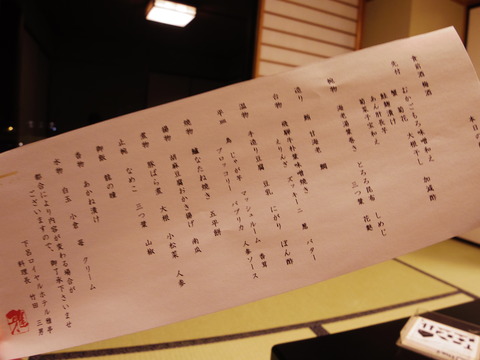 本日の
食前酒 梅酒
先付 むかごもろみ味噌和え 加減酢
蟹 菊花 大根おろし
鮭麹漬け
あん肝長芋
菊菜千寿和え とろろ昆布 しめじ
吸物 海老道葉蒸し 三つ葉 花麩
造り 鮪 甘海老 鯛
台物 飛騨牛朴葉味噌焼き
えりんぎ ズッキーニ 葱 バター
温物 手造り豆腐 豆乳 にがり ぽん酢
じゃが芋 マッシュルーム 香茸
ブロッコリー パプリカ 人参ソース
焼物 鰆なたね焼き 五平餅
揚物 胡麻豆腐おかき揚げ 南瓜
煮物 豚ばら煮 大根 小松菜 人参
止椀 なめこ 三つ葉 山椒
御飯 龍の瞳
香物 あかね漬け
水物 白玉 小倉 苺 クリーム
都合により内容が変わる場合が
ございますので、御了承下さいませ
下呂ロイヤルホテル雅亭
料理長 竹田